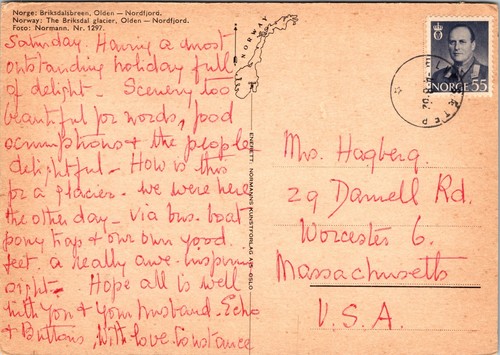 Norge: Briksdalsbreen, Olden — Nordfjord.
Norway: The Briksdal glacier, Olden — Nordfjord.
Foto: Normann. Nr. 1297.
Saturday. Having a most
outstanding holiday full
of delight - Scenery too
beautiful for words, food
scrumptious & the people
delightful - How is this
for a glacier - we were here
the other day - via bus, boat
pony trap & our own good
feet. a really awe-inspiring
sight - Hope all is well
with you & your husband - Echo
& Buttons, With love Constance
NORWAY
ENERETT: NORMANNS KUNSTFORLAG A/S - OSLO
NORGE 55
Mrs. Hagberg.
29 Darnell Rd.
Worcester 6.
Massachusetts
U.S.A.